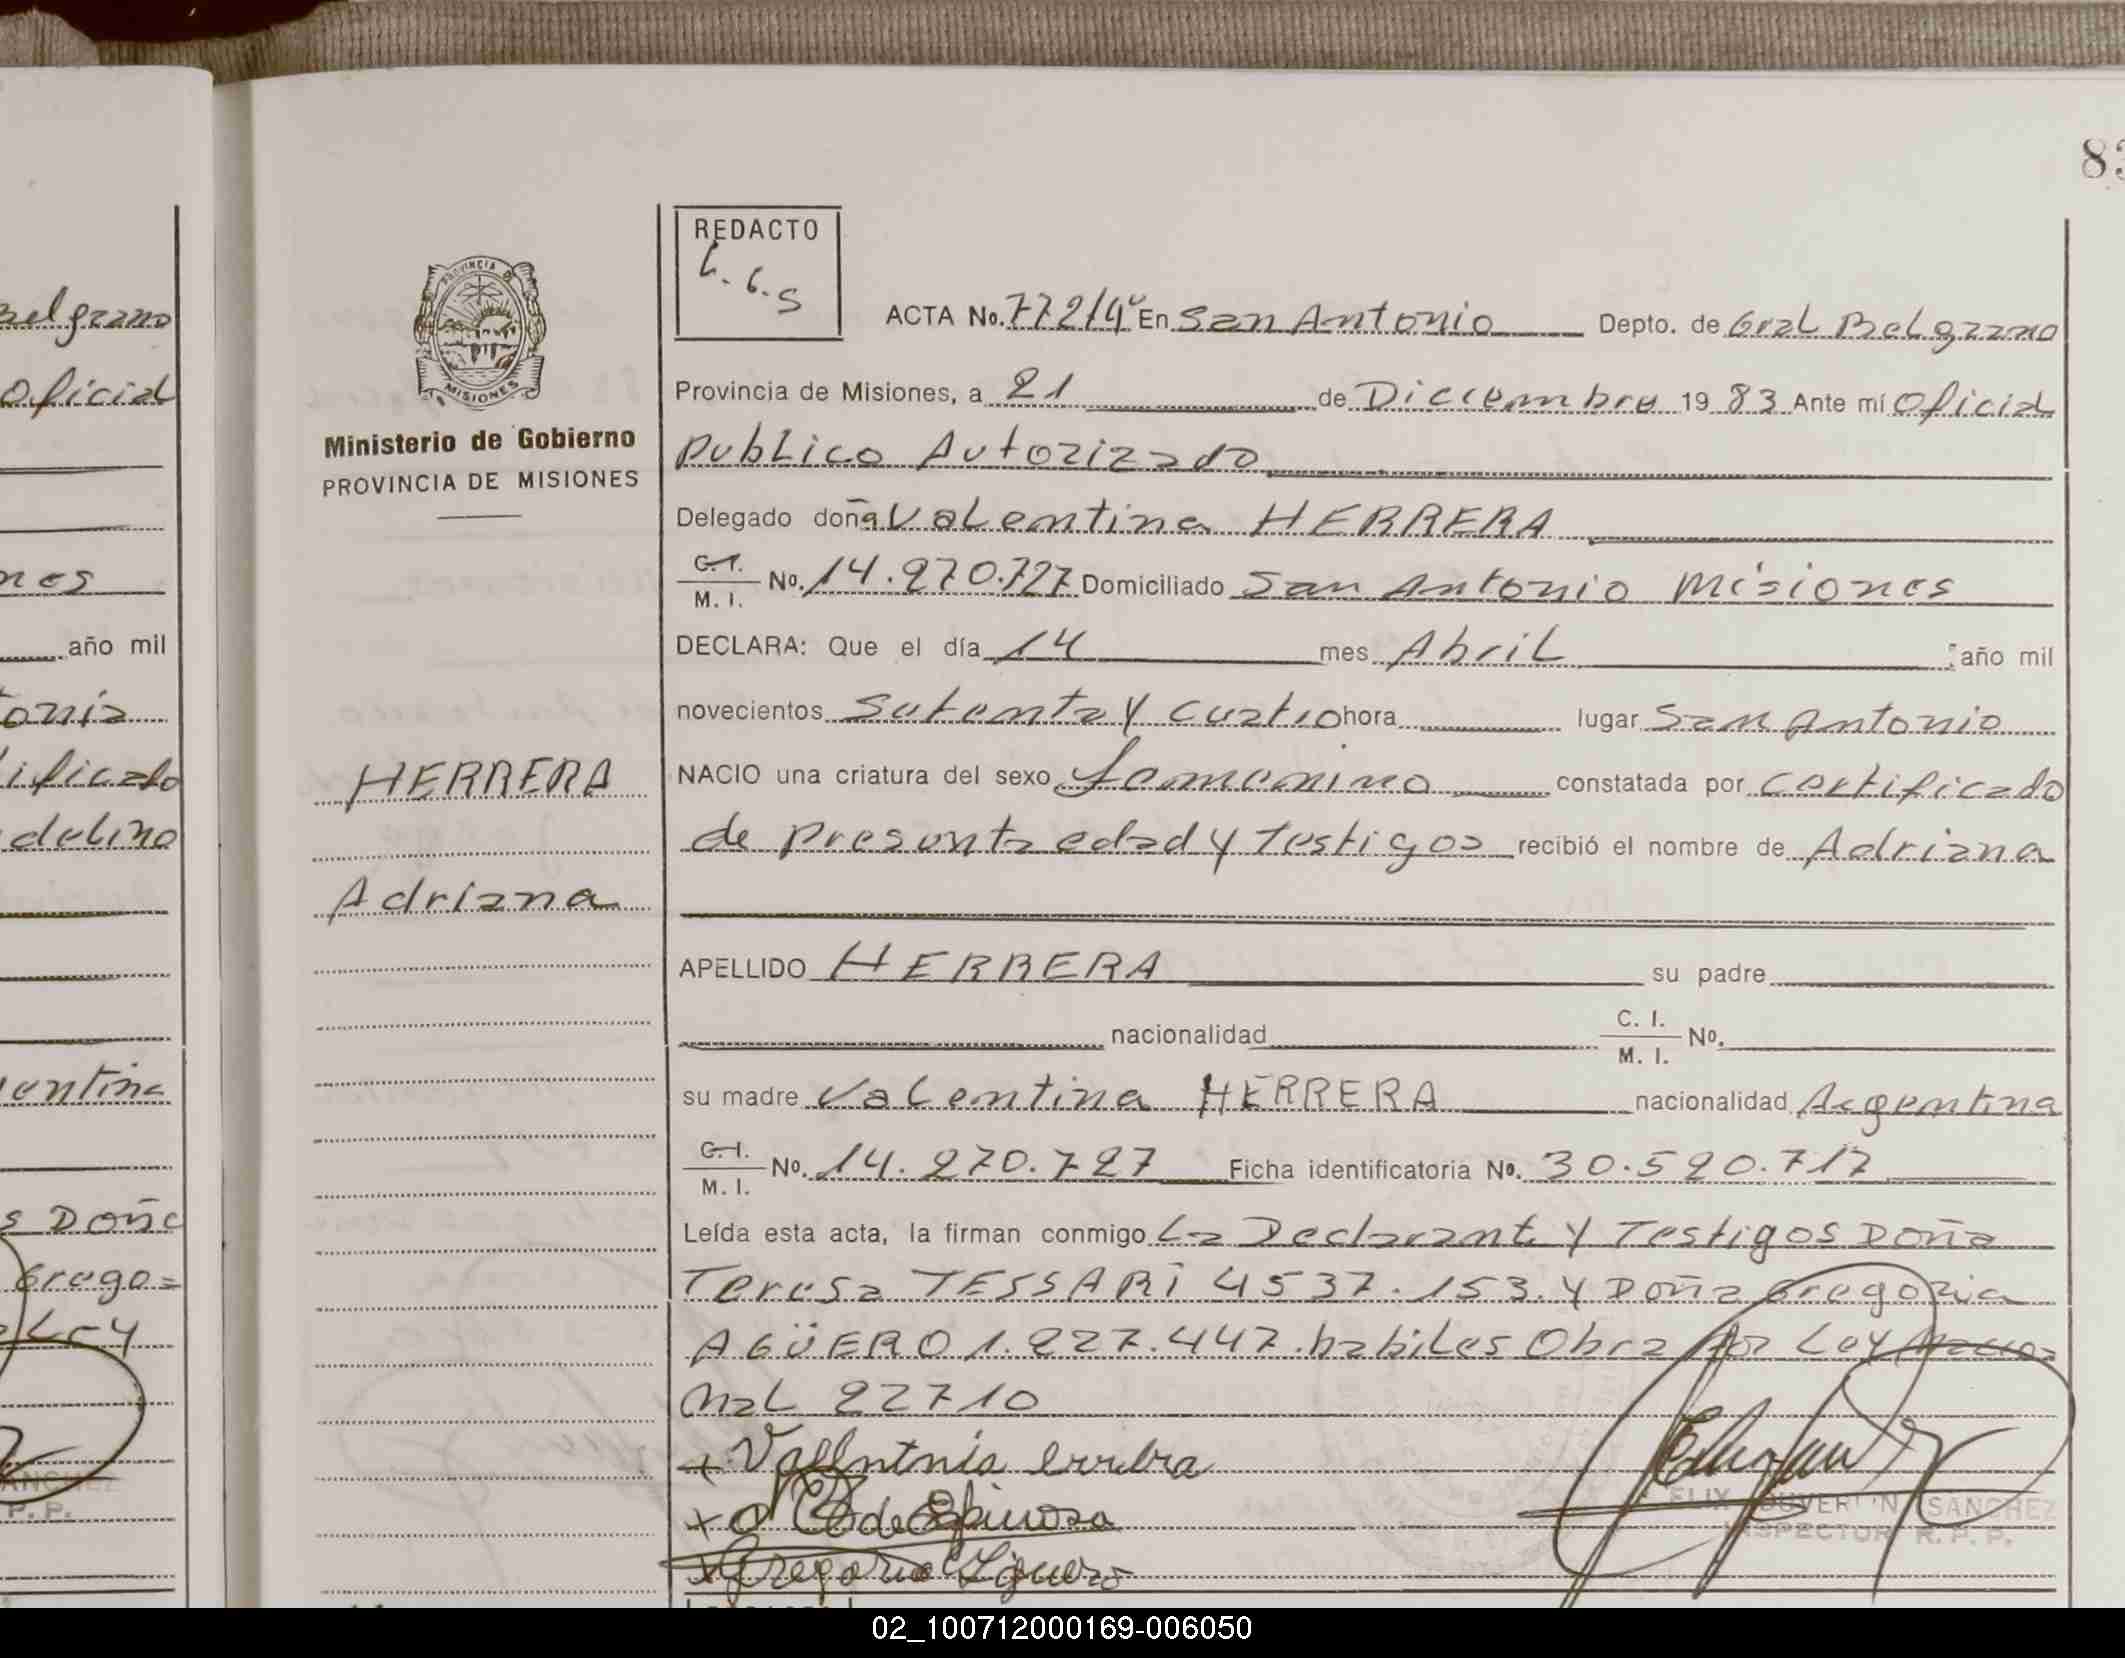 83
Belgrano
Oficial
nes
año mil
tonia
tificado
delino
entina
s Doña
Grego=
Ley
ANCHEZ
P. P.
PROVINCIA DE
MISIONES
Ministerio de Gobierno
PROVINCIA DE MISIONES
HERRERA
Adriana
REDACTO
L.G.S
ACTA No. 772/4º En San Antonio Depto. de Gral Belgrano
Provincia de Misiones, a 21 de Diciembre 19 83 Ante mí Oficial
Publico Autorizado
Delegado doña Valentina HERRERA
C.I. M. I. No. 14.270.727 Domiciliado San Antonio Misiones
DECLARA: Que el día 14 mes Abril año mil
novecientos Setenta y Cuatro hora lugar San Antonio
NACIO una criatura del sexo femenino constatada por Certificado
de Presunta edad y Testigos recibió el nombre de Adriana
APELLIDO HERRERA su padre
nacionalidad C. I. M. I. No.
su madre Valentina HERRERA nacionalidad Argentina
C.I. M. I. No. 14.270.727 Ficha identificatoria No. 30.520.717
Leída esta acta, la firman conmigo La Declarante y Testigos Doña
Teresa TESSARI 4537.153. y Doña Gregoria
AGÜERO 1.227.447. habiles Obra por Ley Nacio=
nal 22710
+ Vallntnia errbra
+ de Espinosa
+ Gregoria Aguero
FELIX SANCHEZ
INSPECTOR R. P. P.
02_100712000169-006050